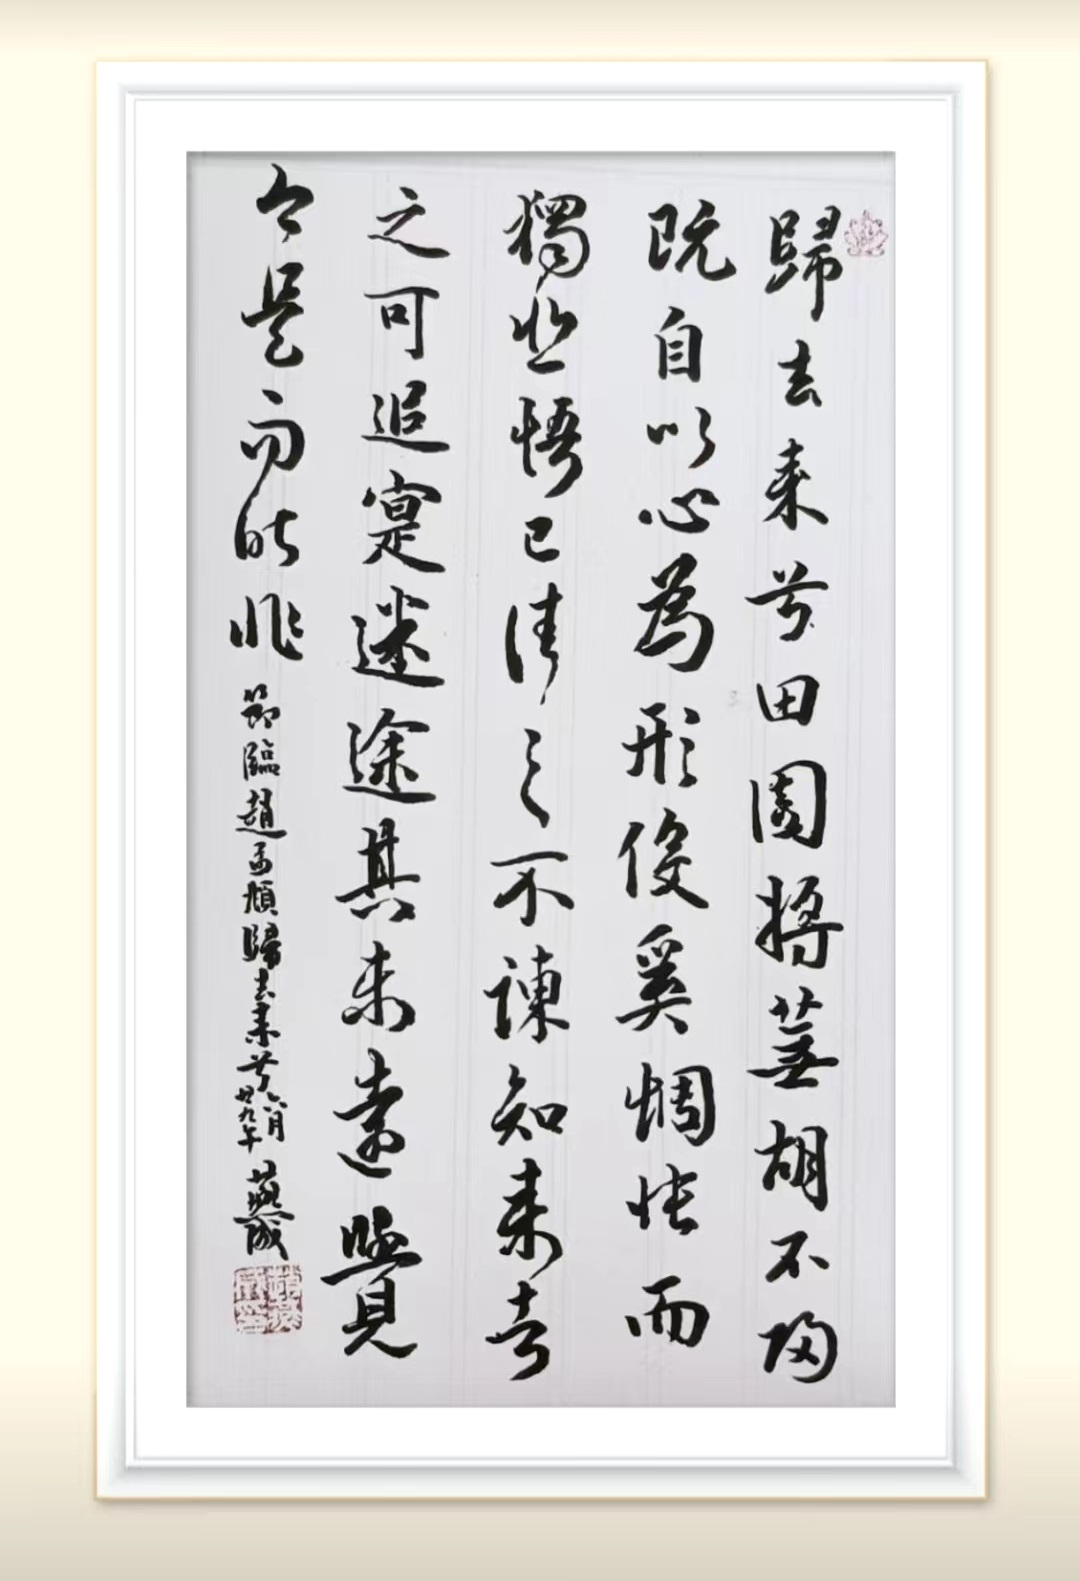 歸去来兮田園將蕪胡不归
既自以心為形役奚惆悵而
獨悲悟已往之不諫知来者
之可追寔迷途其未遠覺
今是而昨非
節臨趙孟頫歸去来兮六月
廿九午